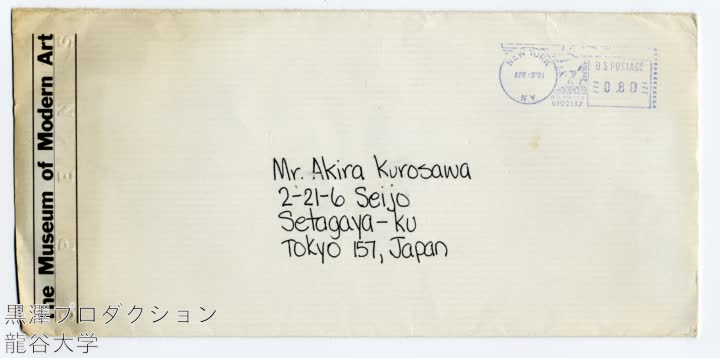 The Museum of Modern Art
NEW YORK
APR-3'84
N.Y.
U.S.POSTAGE
0.60
Mr. Akira Kurosawa
2-21-6 Seijo
Setagaya-ku
Tokyo 157, Japan
黒澤プロダクション
龍谷大学